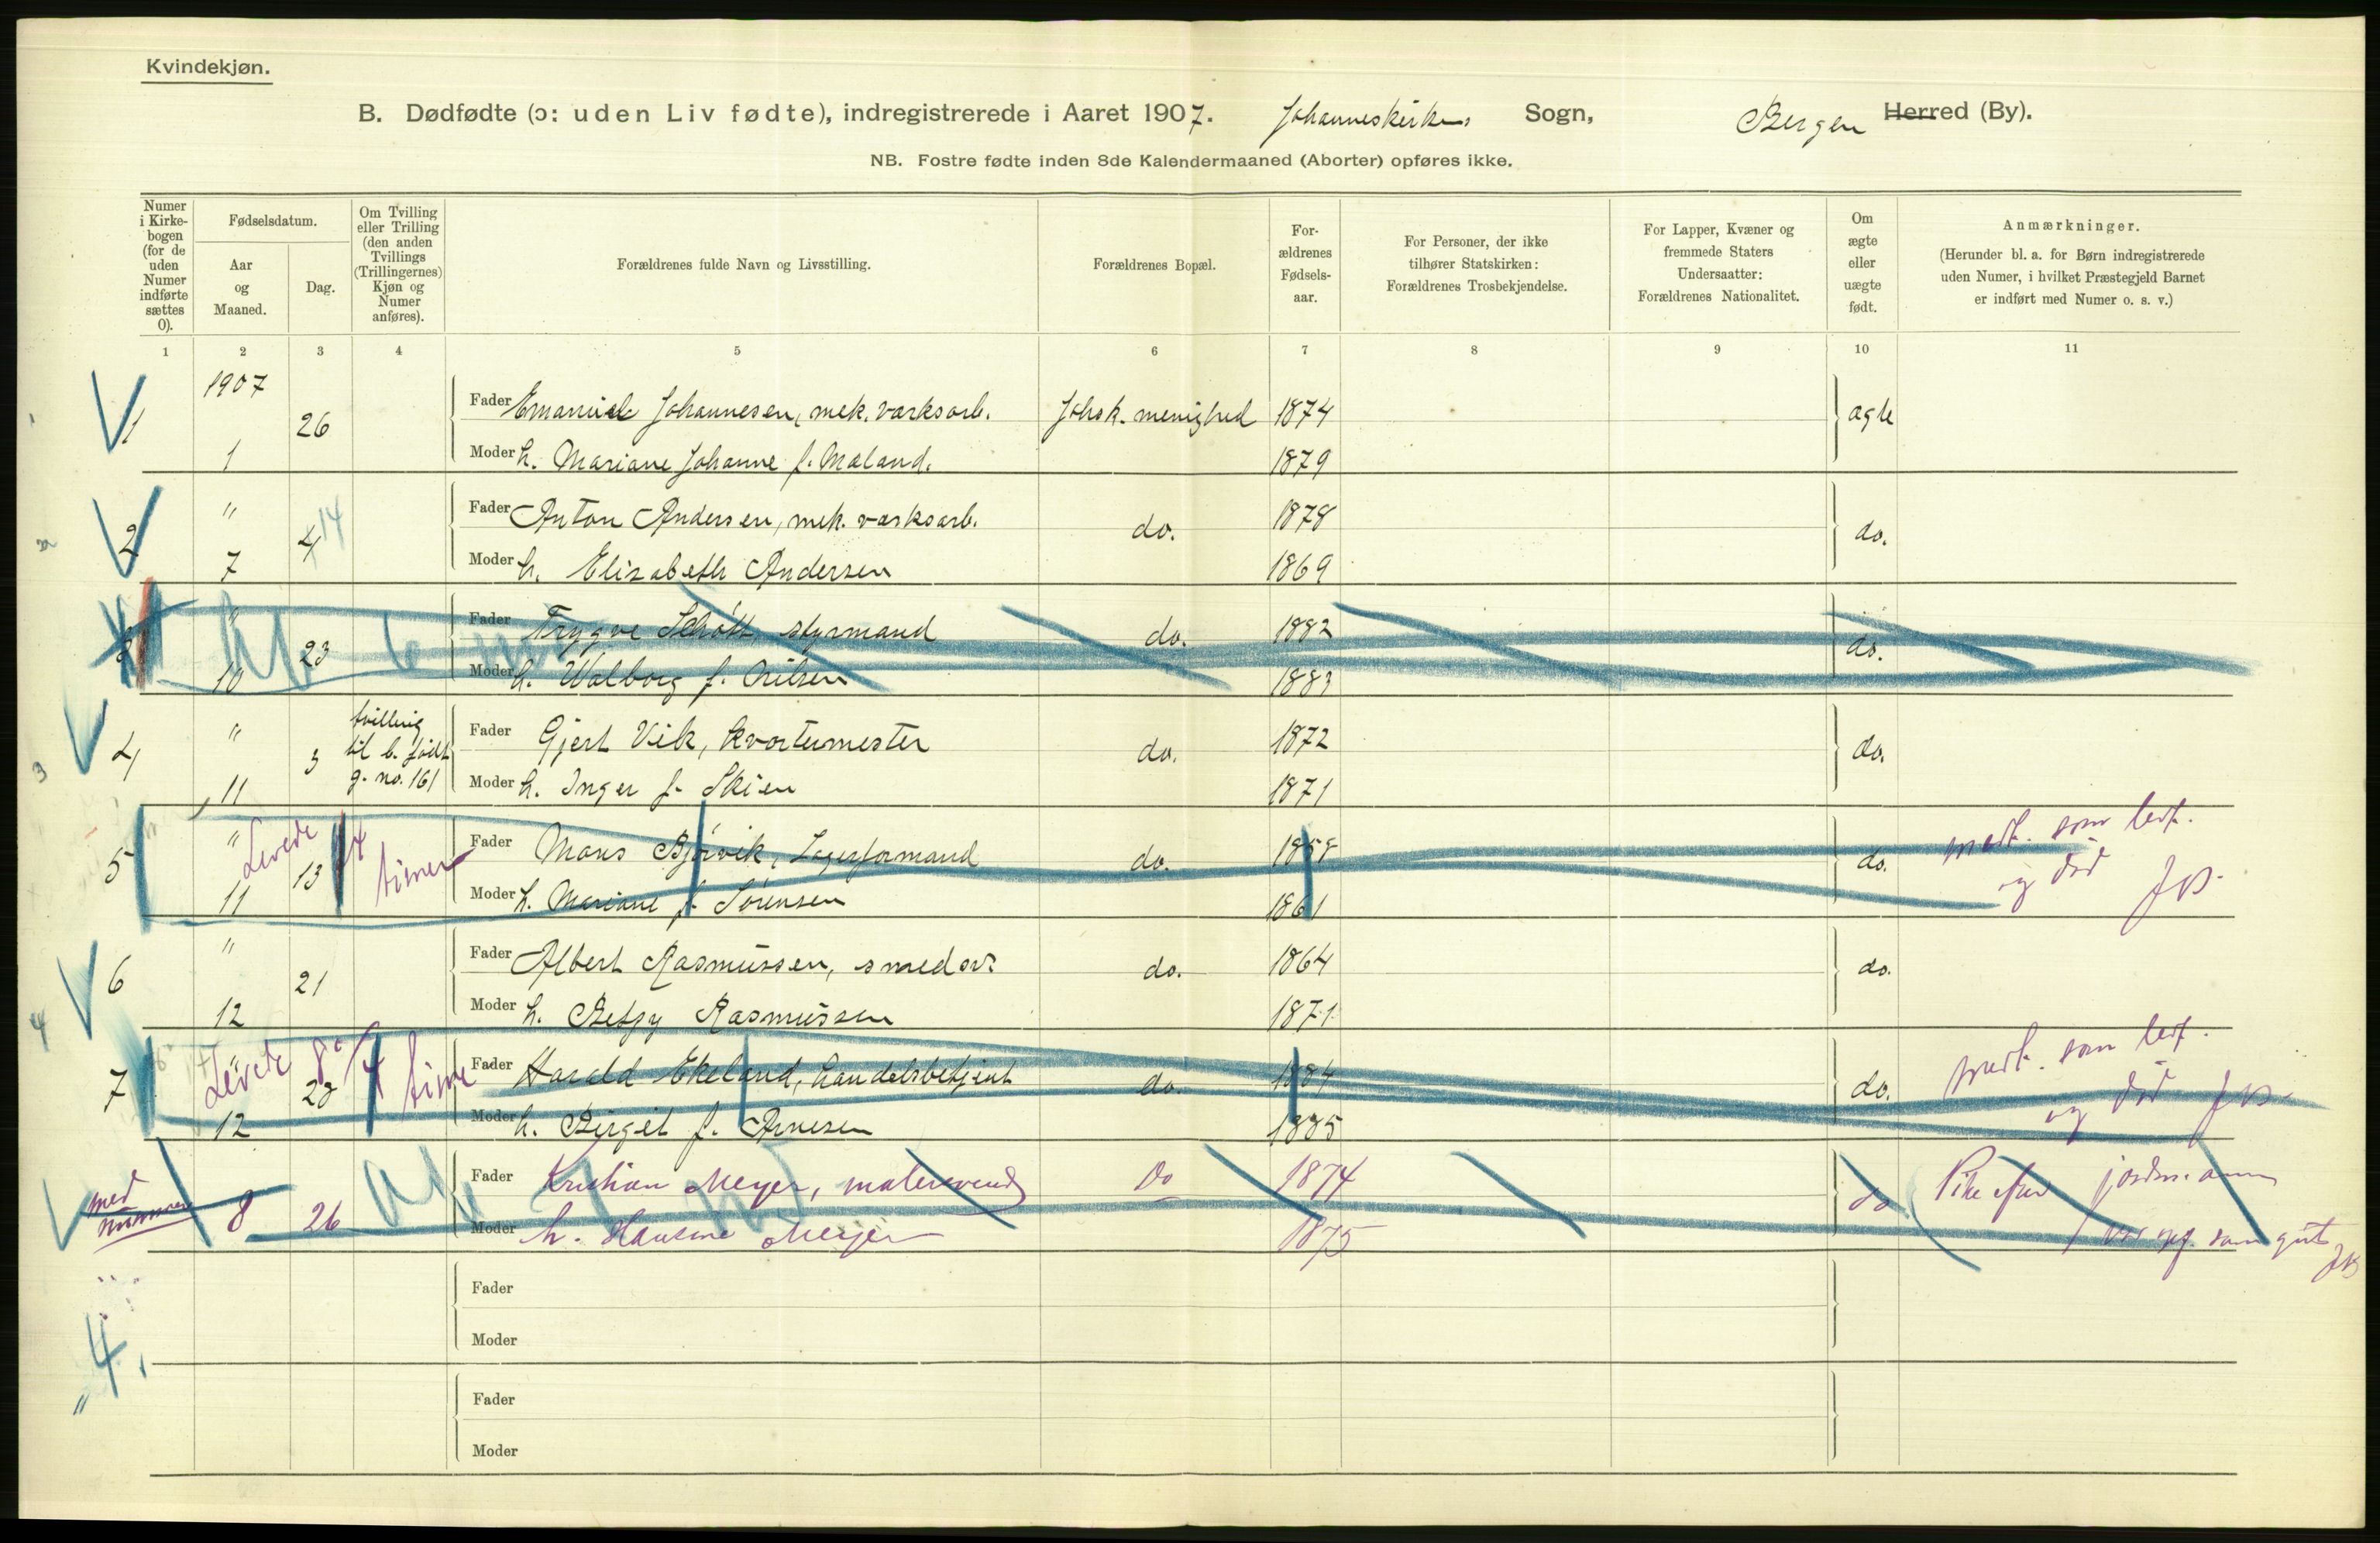 Kvindekjøn.
B. Dødfødte (ɔ: uden Liv fødte), indregistrerede i Aaret 1907. Johanneskirkens Sogn, Bergen Herred (By).
NB. Fostre fødte inden 8de Kalendermaaned (Aborter) opføres ikke.
Numer i Kirkebogen (for de uden Numer indførte sættes 0).
Fødselsdatum.
Aar og Maaned.
Dag.
Om Tvilling eller Trilling (den anden Tvillings (Trillingernes) Kjøn og Numer anføres).
Forældrenes fulde Navn og Livsstilling.
Forældrenes Bopæl.
Forældrenes Fødselsaar.
For Personer, der ikke tilhører Statskirken: Forældrenes Trosbekjendelse.
For Lapper, Kvæner og fremmede Staters Undersaatter: Forældrenes Nationalitet.
Om ægte eller uægte født.
Anmærkninger.
(Herunder bl. a. for Børn indregistrerede uden Numer, i hvilket Præstegjeld Barnet er indført med Numer o. s. v.)
1 2 3 4 5 6 7 8 9 10 11
1 1907 26 Fader Emanuel Johannesen, mek. værksarb. Johsk. menighed 1874 ægte
1 Moder h. Mariane Johanne f. Mæland. 1879
2 " 4 14 Fader Anton Andersen, mek. værksarb. do. 1878 do.
7 Moder h. Elisabeth Andersen 1869
3 " 23 Fader Trygve Schött, styrmand do. 1882 do.
10 Moder h. Walborg f. Nilsen 1883
4 " 3 tvilling til b. født g. no. 161 Fader Gjert Vik, kvartermester do. 1872 do.
11 Moder h. Inger f. Skien 1871
5 " 13 Levede 4 timer Fader Mons Bjørvik, Lagerformand do. 1858 do. medt. som levf.
11 Moder h. Mariane f. Sørensen 1861 og død
6 " 21 Fader Albert Rasmussen, smedsv. do. 1864 do.
12 Moder h. Betzy Rasmussen 1871
7 " 28 Levede time Fader Harald Ekeland, handelsbetjent do. 1884 do. medt. som levf.
12 Moder h. Birgit f. Arnesen 1885 og død
med nummer 8 26 Fader Kristian Meyer, malersvend Do 1874 do
Moder h. Hansine Meyer 1875 som gut
Fader
Moder
4.
Fader
Moder